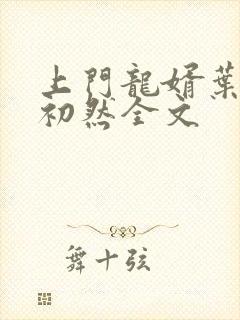 上門龍婿葉
初然全文
舞十弦